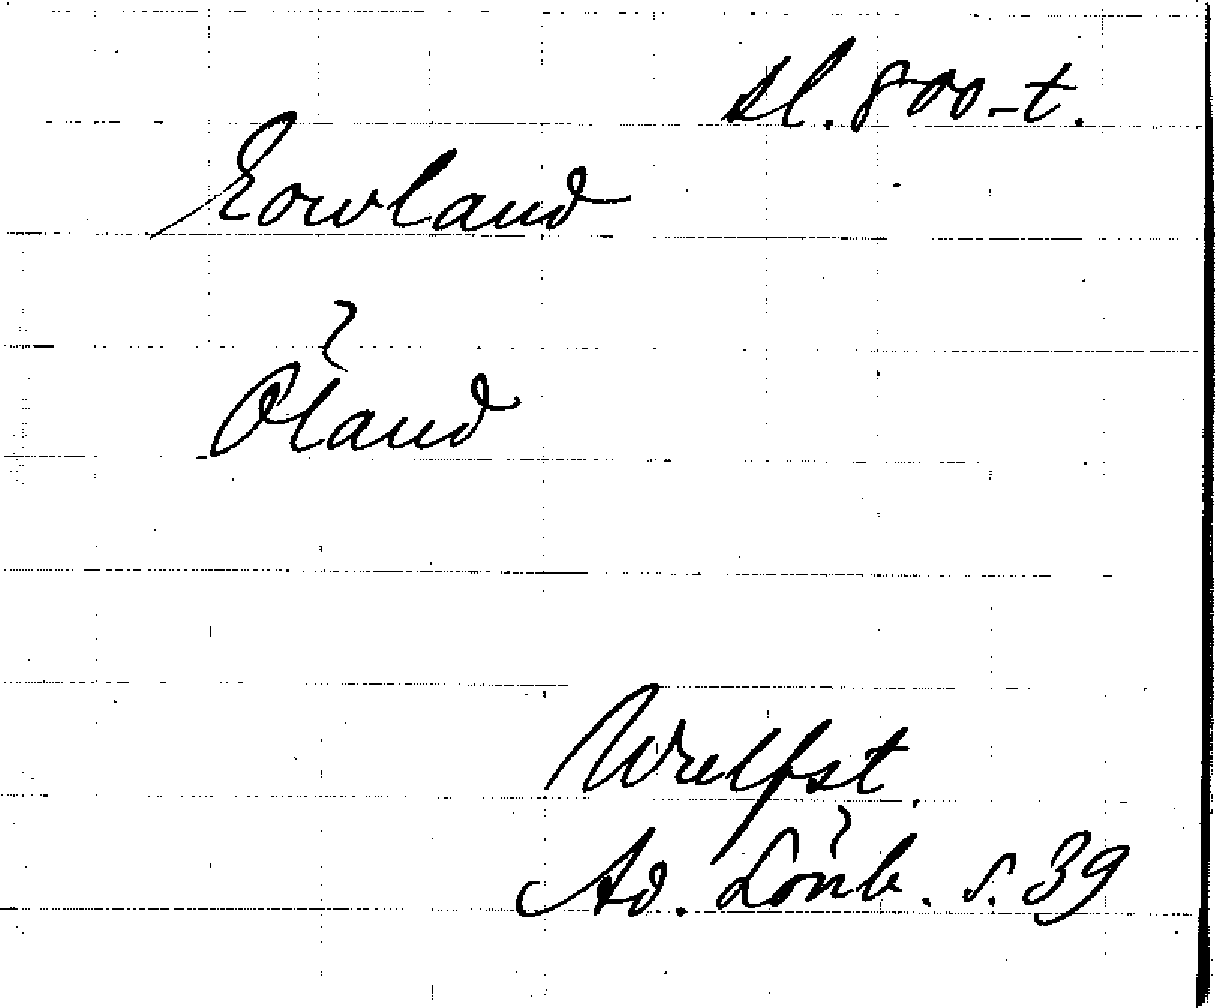 sl. 800-t.
Eowland
Öland
Wulfst
Ad. Lönb. s. 39